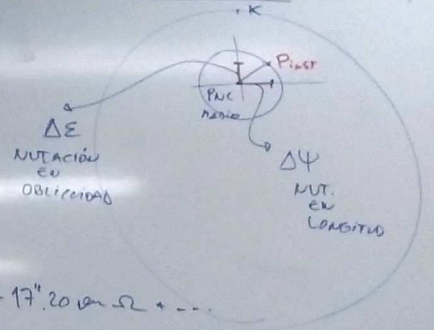 K
Pinst
PNC
medio
Δε
NUTACIÓN
EN
OBLICUIDAD
ΔΨ
NUT.
EN
LONGITUD
-17".20 sen Ω + ...